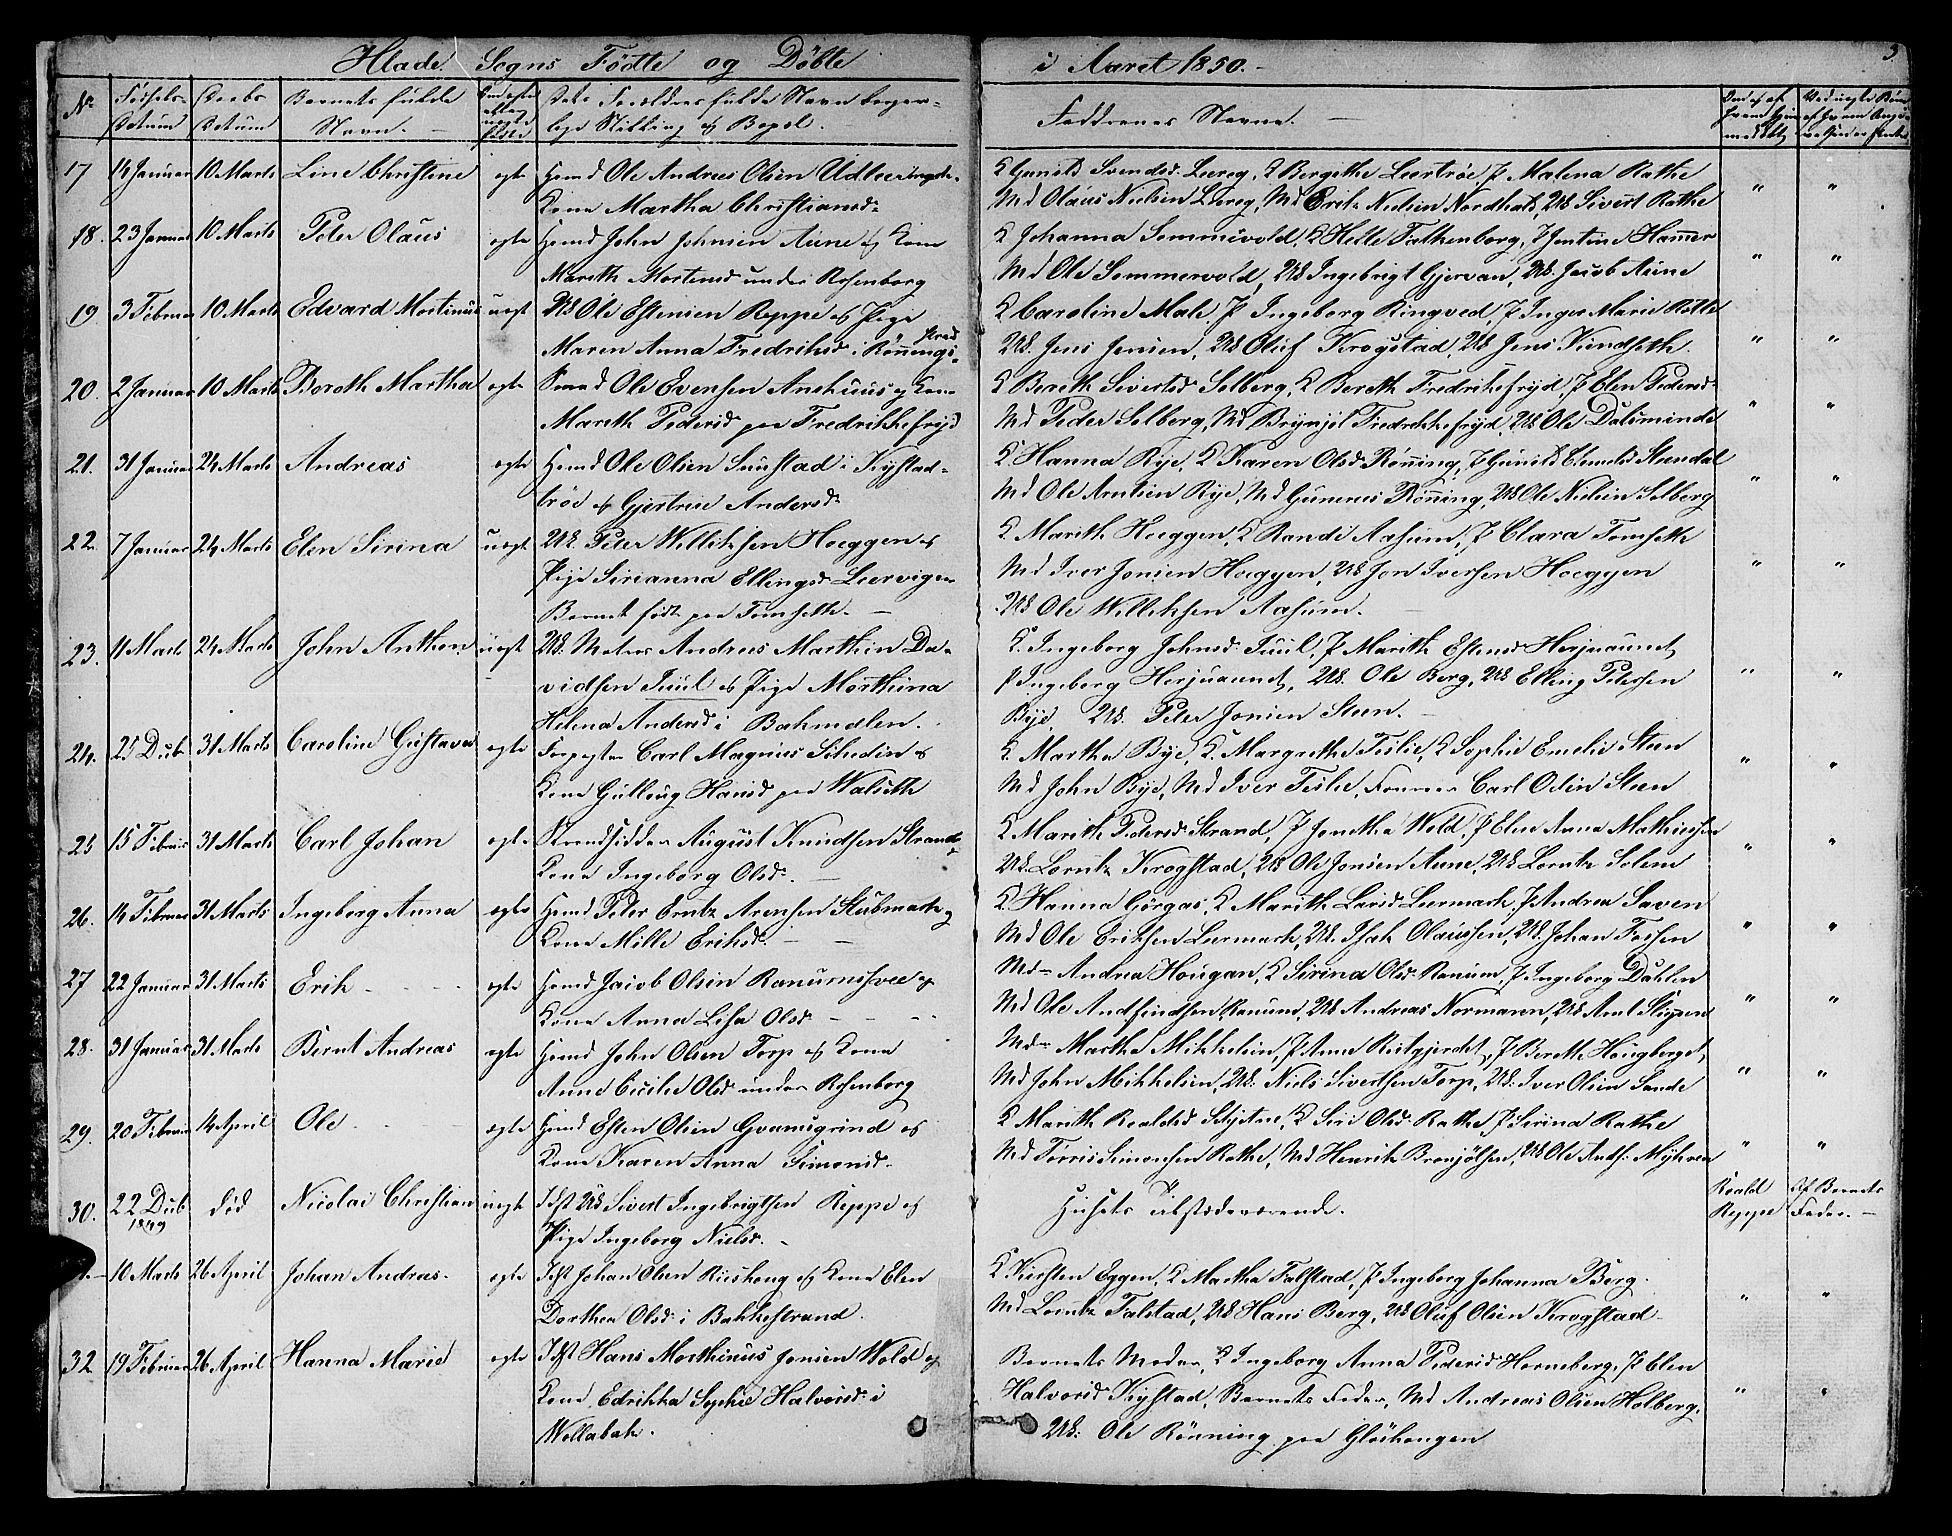 Hlade Sogns Fødte og Døbte i Aaret 1850.
3
No
Fødsels-
Datum
Daabs
Datum
Barnets fulde
Navn.
Faddrenes Navne.
17 14 Januar 10 Marts Line Christine egte Huusmd Ole Andreas Olsen
Kone Martha Christiansd.
K Gunild Svendsd. Leereg, K Bergithe Leertrøe P Malena Rathe
Md Olaus Nielsen Leereg, Md Erik Nielsen Nordhald, UK Sivert Rathe
18. 23 Januar 10 Marts Peter Olaus egte Huusmd John Johnsen Aune og Kone
Mareth Mortensd under Rosenborg
K Johanna Sommervold, K Helle Falkenborg, P Jentine Hammer
Md Ole Sommervold, UK Ingebrigt Gjervan, UK. Jacob Aune
19 3 Februar 10 Marts Edvard Martinus uegt UK Ole Estensen Reppe og Pige
Maren Anna Fredriksd i Rønnings
K Caroline Male, P Ingeborg Ringved, P Inger Marie Rotte
UK. Jens Jensen, UK Oluf Krogstad, UK Jens Kundseth.
20. 2 Januar 10 Marts Boreth Martha egte Ole Evensen Anehuus og Kone
Mareth Pedersd paa Fredrikkefryd
K Bereth Sivertsd Selberg, K Bereth Fredrikkefryd, P Elen Pedersd
Md Peder Selberg, Md Brynjel Fredrikkefryd, UK Ole Dalsminde
21. 31 Januar 24 Marts Andreas egte Huusmd Ole Olsen Sunstad i Kystad-
trøe og Gjertrue Andersd.
K Hanna Rye, K Karen Olsd Rønning, P Gunild Stendal
Md Ole Arntsen Rye, Md Gunerus Rønning, UK Ole Nielsen Selberg
22. 7 Januar 24 Marts Elen Sirina uegt UK. Peter Willeksen Hoeggen og
Pige Sirianna Ellingsd Leervigen
Barnet født paa Tomseth.
K Marith Hoeggen, K Randi Aasum, P Clara Tomseth
Md Iver Jonsen Hoeggen, UK Jon Iversen Hoeggen
UK Ole Willeksen Aasum.
23. 11 Marts 24 Marts John Anthon uegt UK. Andreas Marthin Da-
vidsen Juul og Pige Marthina
Helena Andersd i Bakmalen.
K. Ingeborg Johnsd. Juul, P Marith Estensd Herjuaunet
P Ingeborg Herjuaunet, UK. Ole Berg, UK Elling Petersen
Bye, UK. Peter Jonsen Steen.
24. 25 Dcb. 31 Marts Caroline Gustava egte Forpagter Carl Magnus Schedin og
Kone Gulloug Hansd paa Walseth
K. Martha Bye, K. Margrethe Teslie, K Sophie Emelie Steen
Md John Bye, Md Iver Teslie, Carl Odin Steen
25 15 Februar 31 Marts Carl Johan egte Strandsidder August Knudsen Strand
Kone Ingeborg Olsd.
K Marith Pedersd. Strand, P Jonetha Wold, P Elen Anna Mathiesen
UK. Lorntz Krogstad, UK Ole Jonsen Aune, UK Lorntz Solem
26. 14 Februar 31 Marts Ingeborg Anna egte Huusmd Peter Erntz Arensen Stubmark og
Kone Mille Eriksd.
K. Hanna Görgas, K Marith Larsd. Leermark, P Andrea Saven
Md Ole Eriksen Leermark, UK. Isak Olaussen, UK. Johan Fossen
27 22 Januar 31 Marts Erik egte Huusmd Jacob Olsen Ranumshvee og
Kone Anna Lisa Olsd
Md- Andrea Hougan, K Sirina Olsd. Ranum, P Ingeborg Dahlen
Md Ole Andfindsen Ranum, UK Andreas Normann, UK Arnt Stigsen
28. 31 Januar 31 Marts Bernt Andreas egte Huusmd John Olsen Torp og Kone
Anne Cicilie Olsd under Rosenborg
Md- Martha Mikkelsen, P Anne Reitgjerdet, P Bereth Hougberget,
Md John Mikkelsen, UK. Niels Sivertsen Torp, UK. Iver Olsen Sande
29. 20 Februar 14 April Ole egte Huusmd Esten Olsen Gvamsgrind og
Kone Karen Anna Simonsd.
K Marith Roaldsd Skjetne, K Siri Olsd. Rathe, P Sirina Rathe
Md Torris Simonsen Rathe, Md Henrik Bronjolsen, UK Ole Myhren
30. 22 Dcb 1849 død Nicolai Christian uegte Idst UK. Sivert Ingebrigtsen Reppe og
Pige Ingeborg Nielsd.
Husets tilstedeværende.
Roald
Reppe
Af Barnets
Fader.
10 Marts 26 April Johan Andreas. egte Idst Johan Olsen Riishoug og Kone Elen
Dorthea Olsd. i Bakkestrand.
K Kiersten Eggen, K Martha Falstad, P Ingeborg Johanna Berg.
Md Lorntz Falstad, UK Hans Berg, UK Oluf Olsen Krogstad
32 19 Februar 26 April Hanna Marie egte Idst Hans Marthinus Jonsen Wold og
Kone Edrikka Sophie Halvorsd. i
Wollabak.
Barnets Moder, K Ingeborg Anna Pedersd. Horneberg, P Elen
Halvorsd Kystad, Barnets Fader, Md Andreas Olsen Holberg,
UK. Ole Rønning paa Gløshaugen